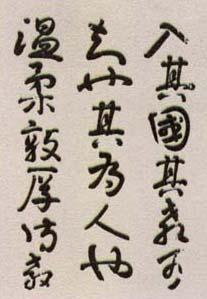 入其國其教可
知也其為人也
溫柔敦厚詩教